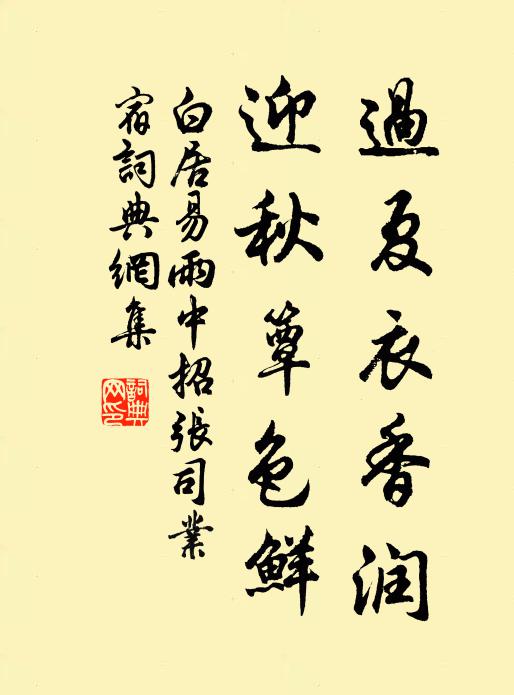 過夏衣香润
迎秋簟色鮮
白居易雨中招張司業
宿詞典網集
詞典网印